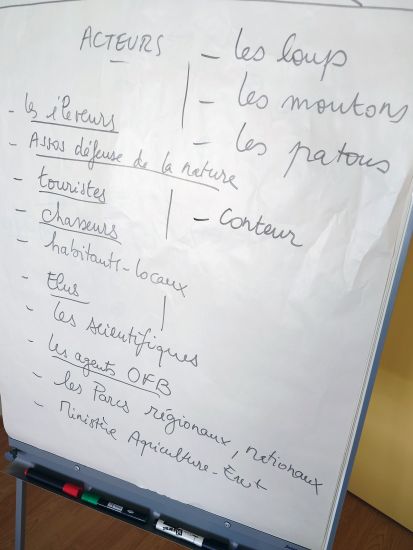 ACTEURS
- les loup
- les moutons
- les patous
- conteur
- les éleveurs
- Assos défense de la nature
- touristes
- chasseurs
- habitants-locaux
- Elus
- les scientifiques
- les agents OFB
- les Parcs régionaux, nationaux
- Ministère Agriculture-